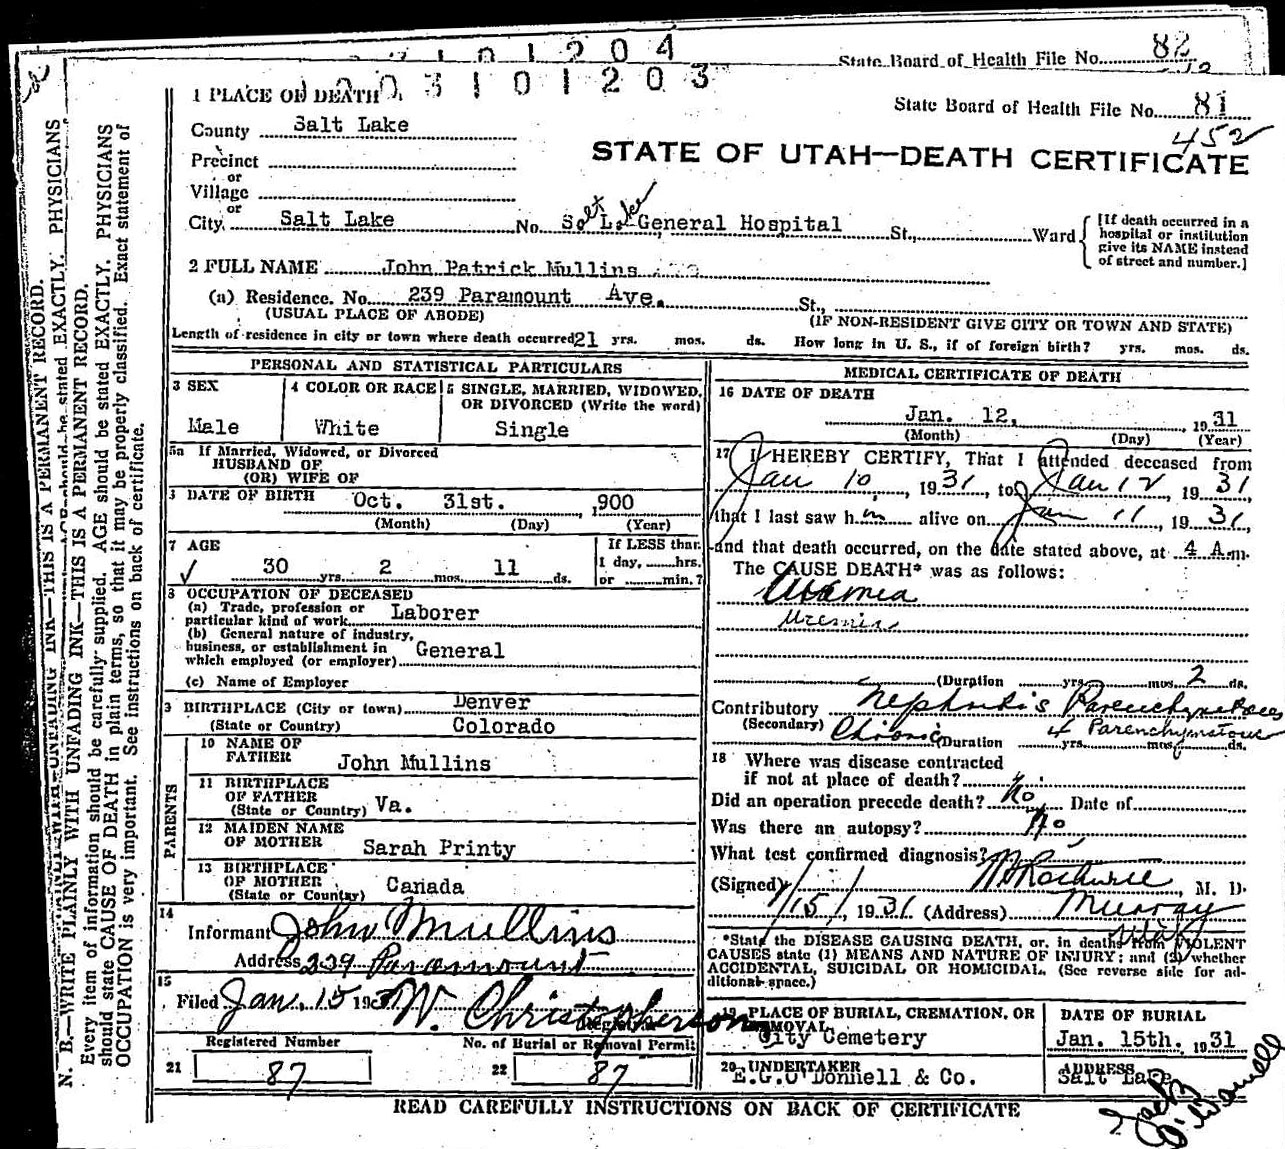 1 0 1 2 0 4
State Board of Health File No. 82
3 1 0 1 2 0 3
State Board of Health File No. 81
452
STATE OF UTAH—DEATH CERTIFICATE
1 PLACE OF DEATH
County Salt Lake
Precinct
or
Village
or
City. Salt Lake No. Salt Lake General Hospital St., Ward
[If death occurred in a
hospital or institution
give its NAME instead
of street and number.]
2 FULL NAME John Patrick Mullins
(a) Residence. No. 239 Paramount Ave. St.,
(USUAL PLACE OF ABODE) (IF NON-RESIDENT GIVE CITY OR TOWN AND STATE)
Length of residence in city or town where death occurred 21 yrs. mos. ds. How long in U. S., if of foreign birth? yrs. mos. ds.
PERSONAL AND STATISTICAL PARTICULARS
3 SEX
Male
4 COLOR OR RACE
White
5 SINGLE, MARRIED, WIDOWED,
OR DIVORCED (Write the word)
Single
5a If Married, Widowed, or Divorced
HUSBAND OF
(OR) WIFE OF
DATE OF BIRTH Oct. 31st. ,900
(Month) (Day) (Year)
7 AGE
30 yrs. 2 mos. 11 ds.
If LESS than
1 day, hrs.
or min.?
8 OCCUPATION OF DECEASED
(a) Trade, profession or
particular kind of work Laborer
(b) General nature of industry,
business, or establishment in
which employed (or employer) General
(c) Name of Employer
9 BIRTHPLACE (City or town) Denver
(State or Country) Colorado
PARENTS
10 NAME OF
FATHER John Mullins
11 BIRTHPLACE
OF FATHER
(State or Country) Va.
12 MAIDEN NAME
OF MOTHER Sarah Printy
13 BIRTHPLACE
OF MOTHER
(State or Country) Canada
14
Informant John Mullins
Address 239 Paramount
15
Filed Jan. 15 1931 W. Christopherson
Registrar
Registered Number
21 87
No. of Burial or Removal Permit
22 87
MEDICAL CERTIFICATE OF DEATH
16 DATE OF DEATH
Jan. 12, 1931
(Month) (Day) (Year)
17 I HEREBY CERTIFY, That I attended deceased from
Jan 10, 1931, to Jan 12, 1931
that I last saw h im alive on Jan 11, 1931,
and that death occurred, on the date stated above, at 4 A.m.
The CAUSE DEATH* was as follows:
Uremia
Uremia
(Duration yrs. mos. 2 ds.
Contributory Nephritis Parenchymatous
(Secondary) Chronic Parenchymatous
(Duration 4 yrs. mos. ds.
18 Where was disease contracted
if not at place of death?
Did an operation precede death? No Date of
Was there an autopsy? No
What test confirmed diagnosis?
(Signed) , M. D.
1/15/, 1931 (Address) Murray
Utah
*State the DISEASE CAUSING DEATH, or, in deaths from VIOLENT
CAUSES state (1) MEANS AND NATURE OF INJURY; and (2) whether
ACCIDENTAL, SUICIDAL OR HOMICIDAL. (See reverse side for ad-
ditional space.)
19 PLACE OF BURIAL, CREMATION, OR
REMOVAL
City Cemetery
DATE OF BURIAL
Jan. 15th. 1931
20 UNDERTAKER
E.G.O'Donnell & Co.
ADDRESS
Salt Lake
READ CAREFULLY INSTRUCTIONS ON BACK OF CERTIFICATE
N. B.—WRITE PLAINLY WITH UNFADING INK—THIS IS A PERMANENT RECORD.
Every item of information should be carefully supplied. AGE should be stated EXACTLY. PHYSICIANS
should state CAUSE OF DEATH in plain terms, so that it may be properly classified. Exact statement of
OCCUPATION is very important. See instructions on back of certificate.